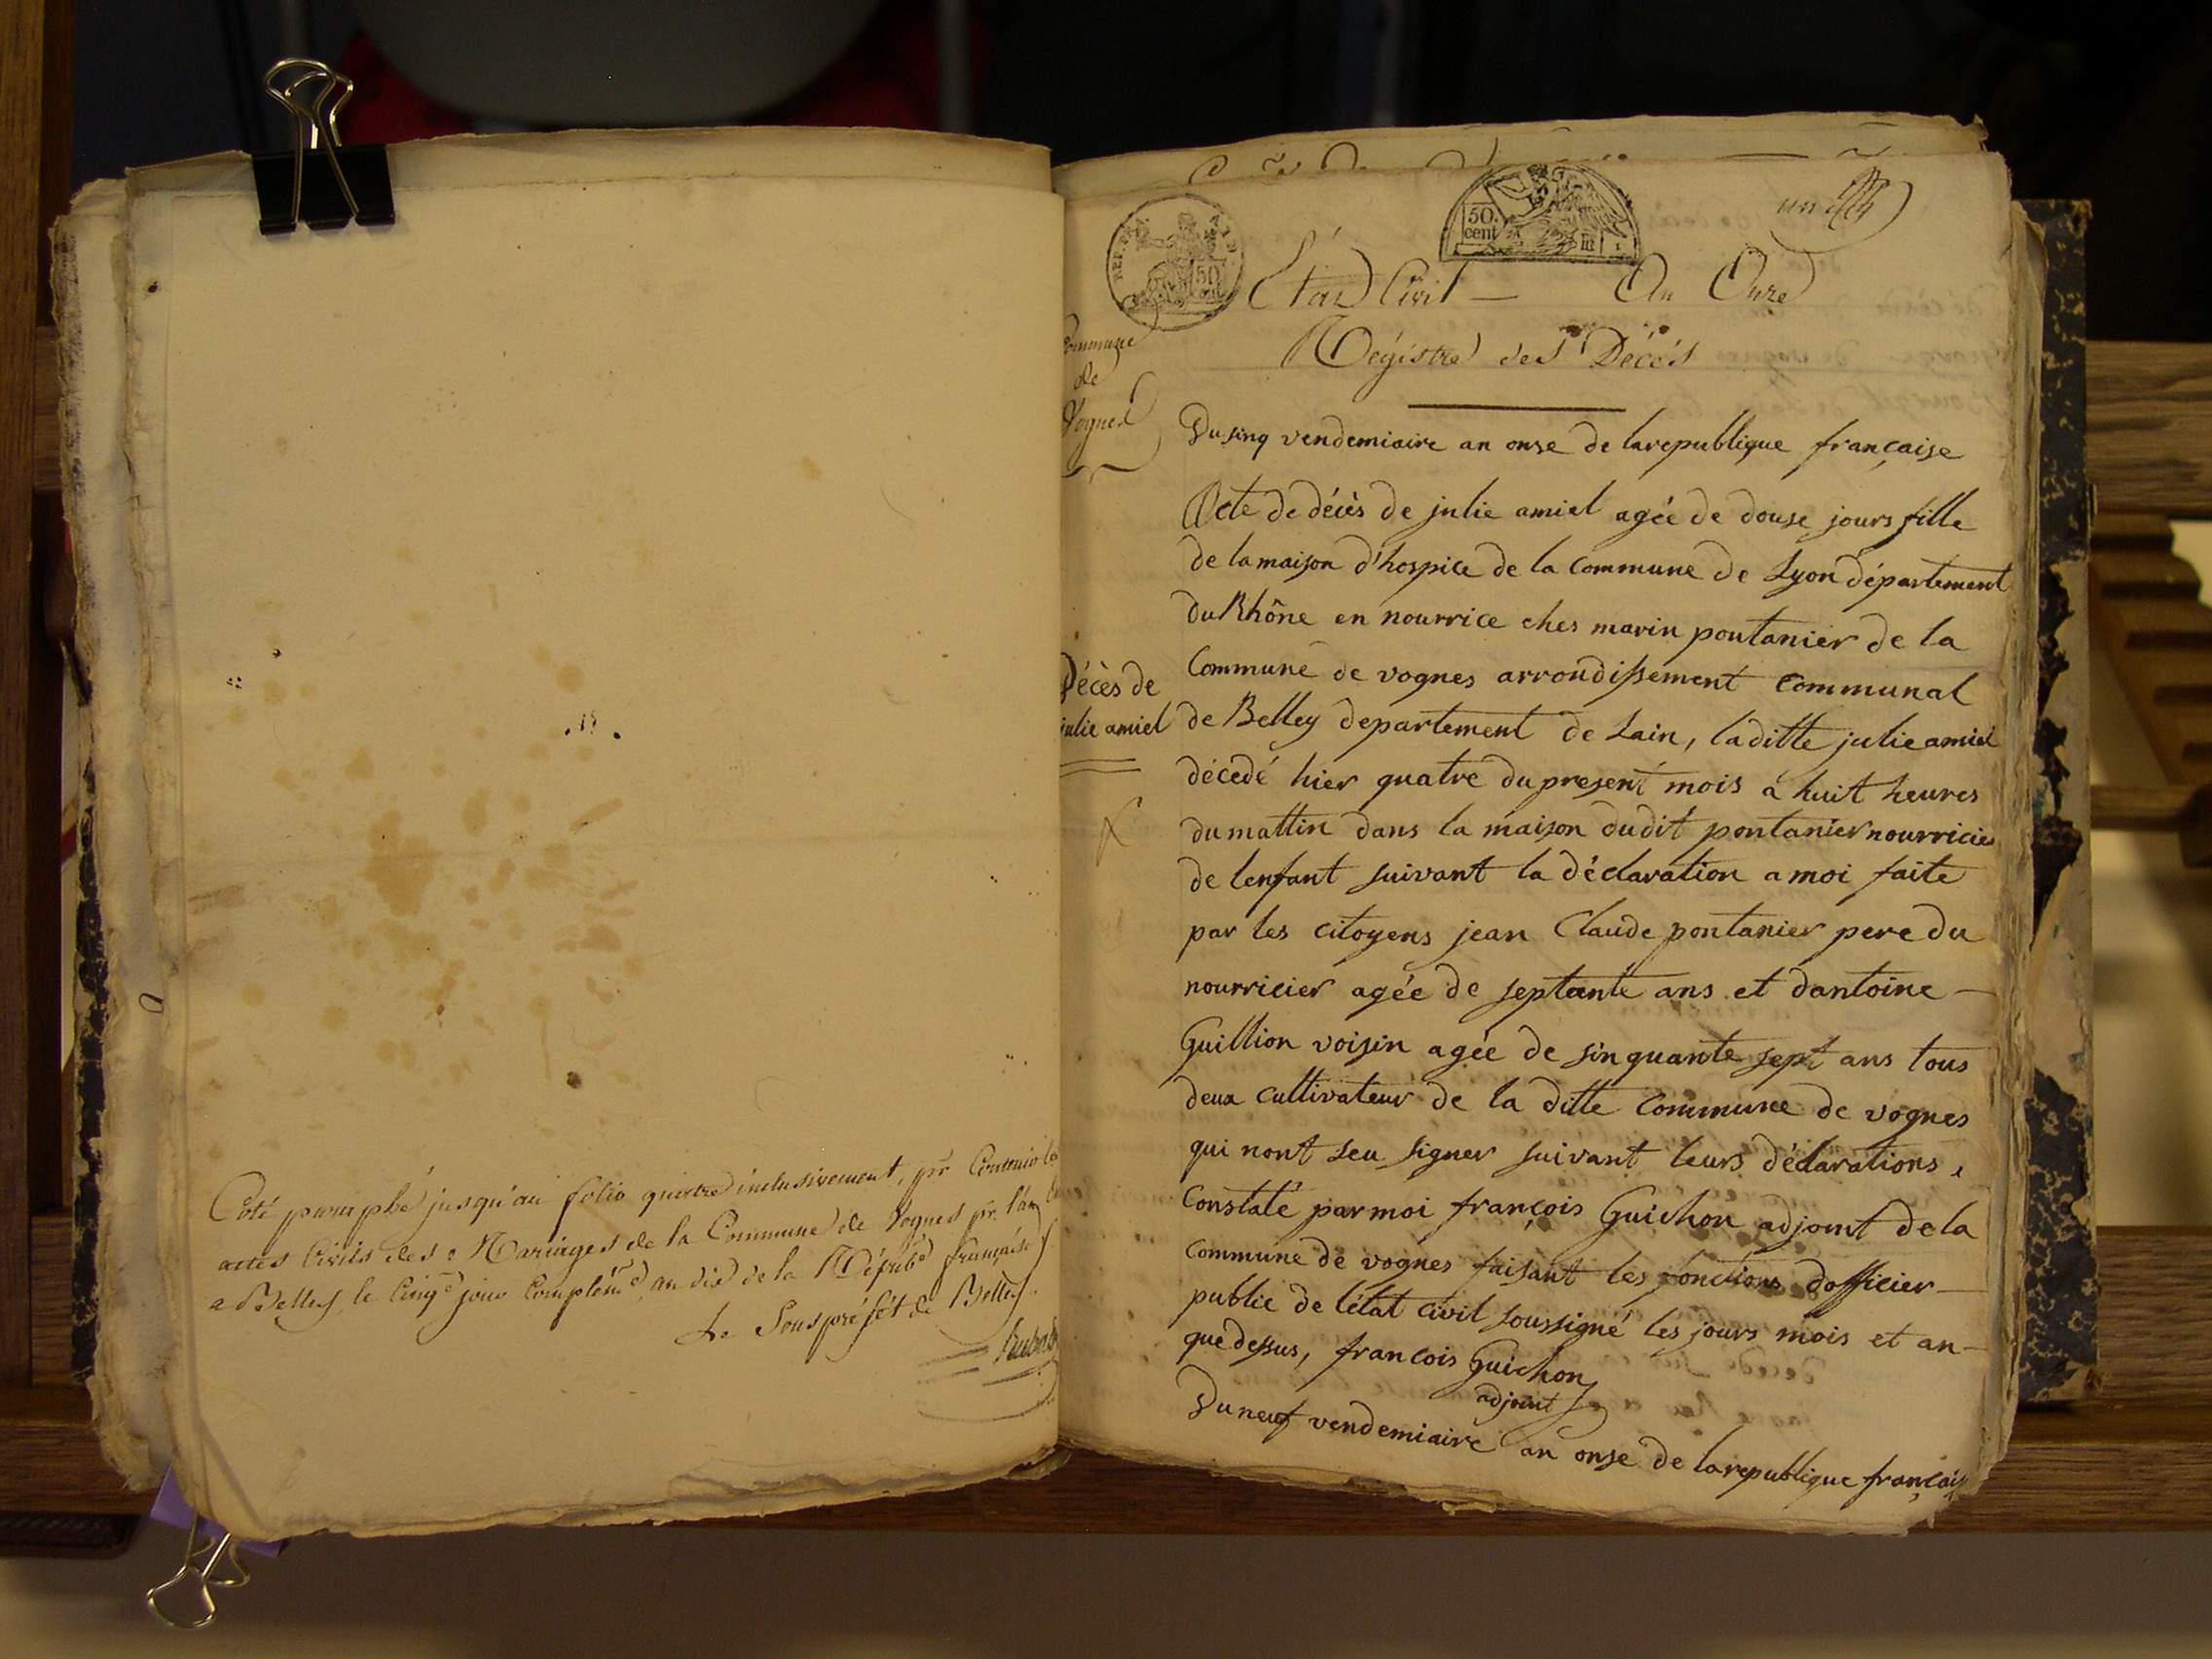 Coté paraphé jusqu'au folio quatre inclusivement, pr. Contenir les
actes Civils des Mariages de la Commune de Vognes pr. l'an
a Belley le Cinqe jour Complémre an dix de la Républ. française
Le Souspréfét de Belley.
REP. FRA.
50
50.
cent
un
État Civil — An Onze
Régistre des Décès
Commune
de
Vognes
Du sinq vendemiaire an onse de larepublique française
Décès de
julie amiel
Acte de décès de julie amiel agée de douse jours fille
de la maison d'hospice de la Commune de Lyon département
du Rhône en nourrice ches marin pontanier de la
Commune de vognes arrondissement Communal
de Belley departement de Lain, laditte julie amiel
décedé hier quatre du present mois à huit heures
du mattin dans la maison dudit pontanier nourricier
de lenfant suivant la déclaration a moi faite
par les citoyens jean Claude pontanier pere du
nourricier agée de septante ans et dantoine —
Guillion voisin agée de sinquante sept ans tous
deux cultivateur de la ditte Commune de vognes
qui nont seu signer suivant leurs déclarations,
Constaté par moi françois Guichon adjoint de la
Commune de vognes faisant les fonctions dofficier —
public de létat civil soussigné les jours mois et an —
que dessus, francois Guichon
adjoint
Du neuf vendemiaire an onse de larepublique français